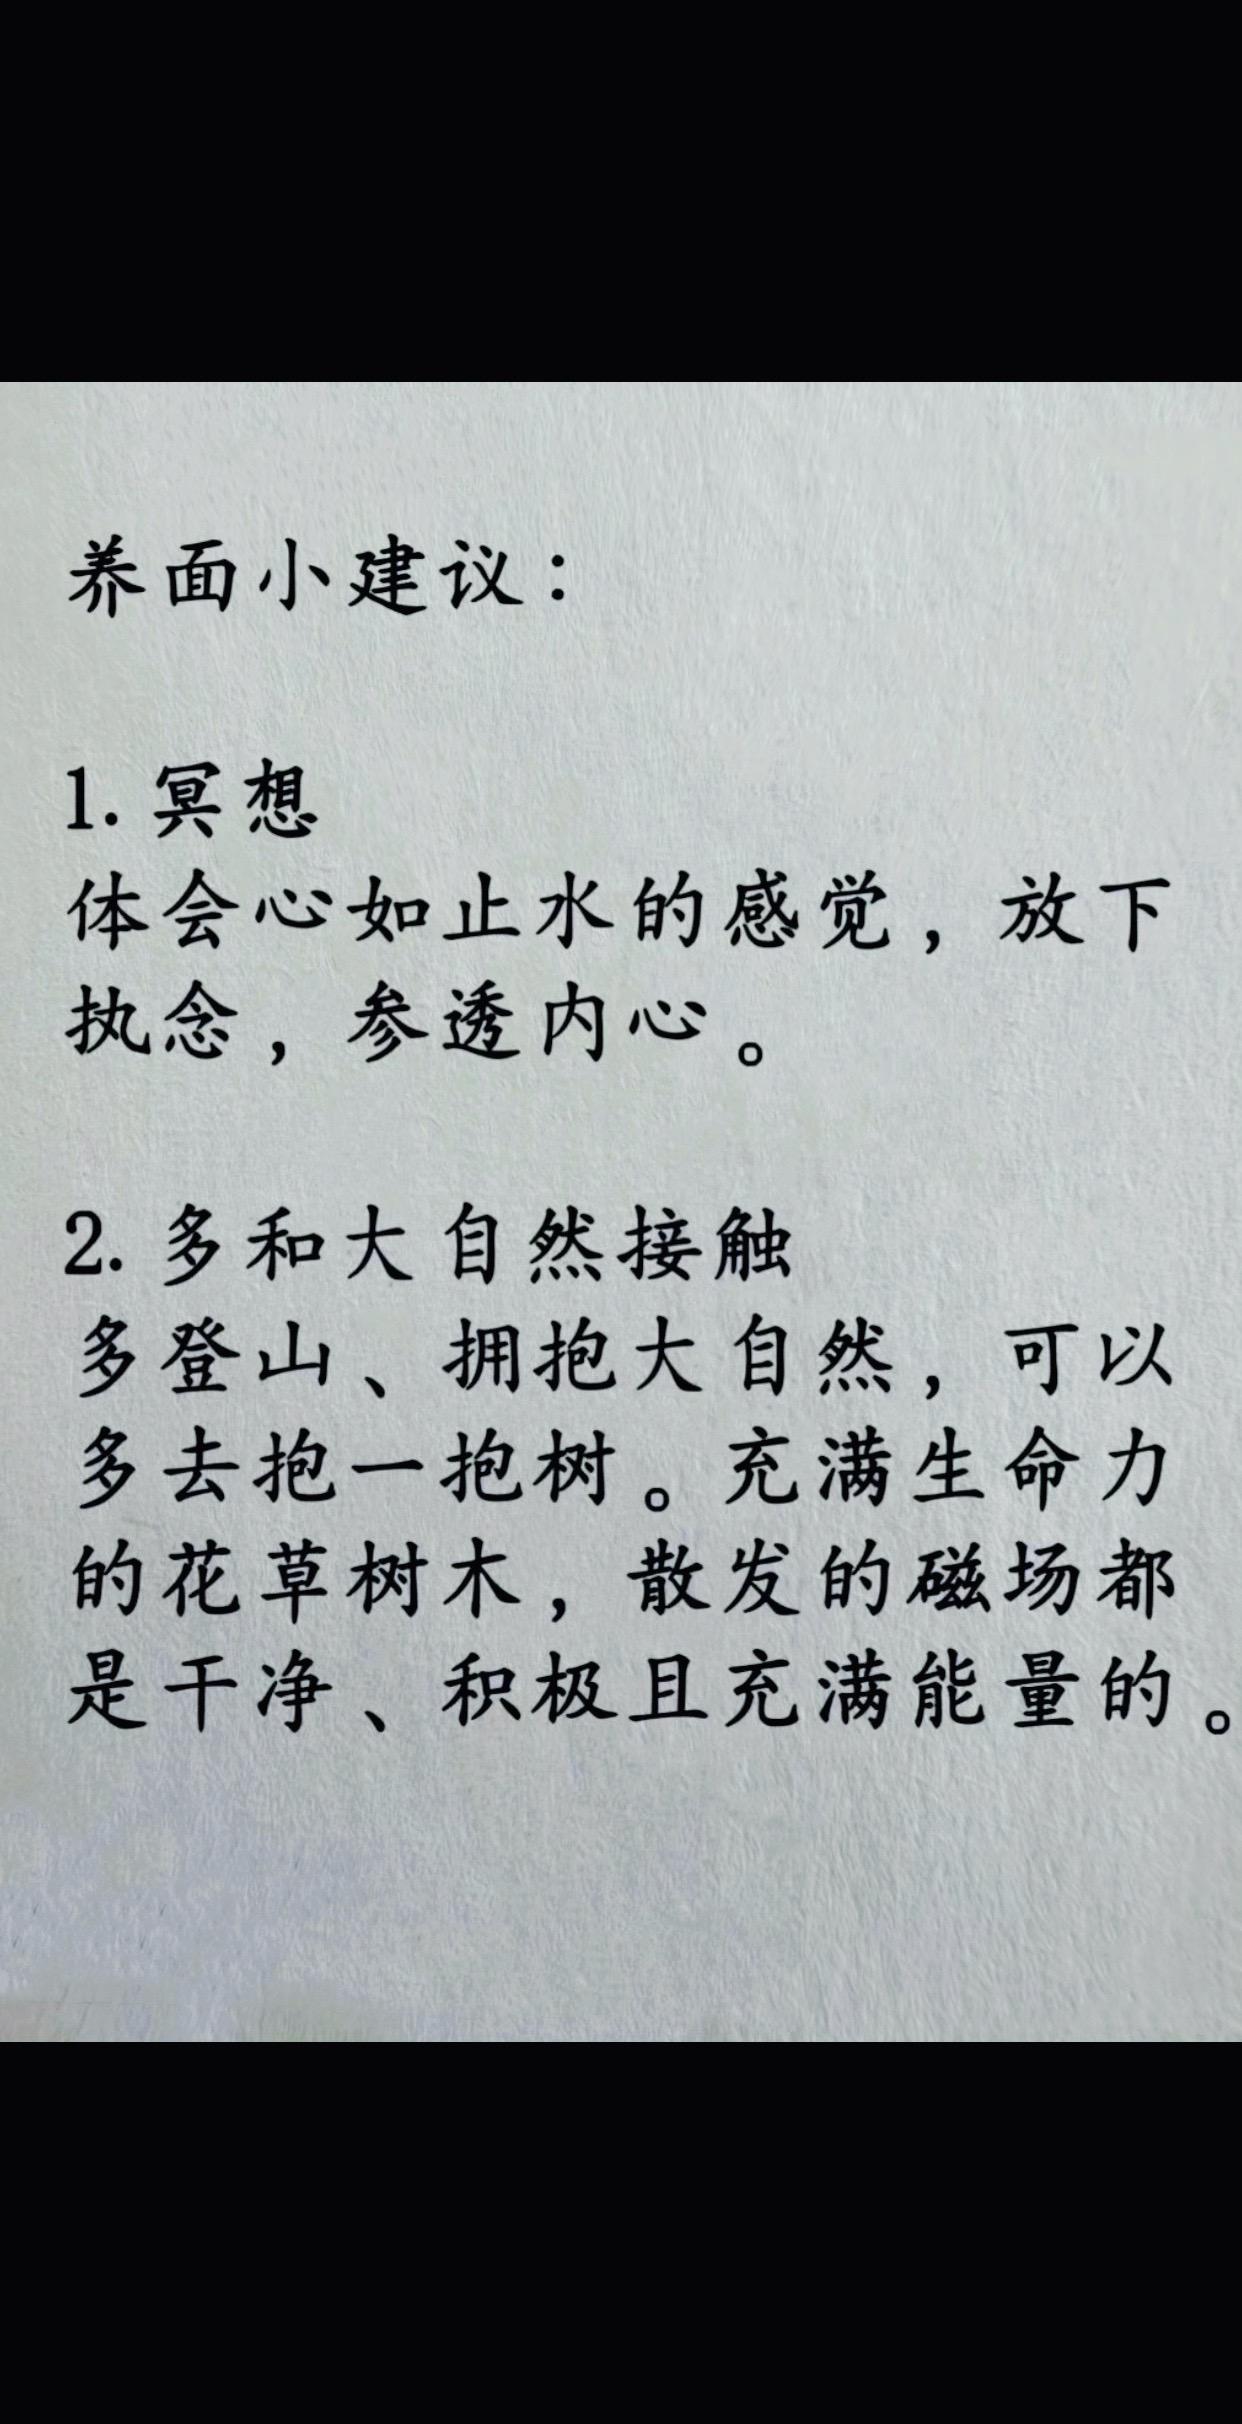 养面小建议：
1. 冥想
体会心如止水的感觉，放下
执念，参透内心。
2. 多和大自然接触
多登山、拥抱大自然，可以
多去抱一抱树。充满生命力
的花草树木，散发的磁场都
是干净、积极且充满能量的。